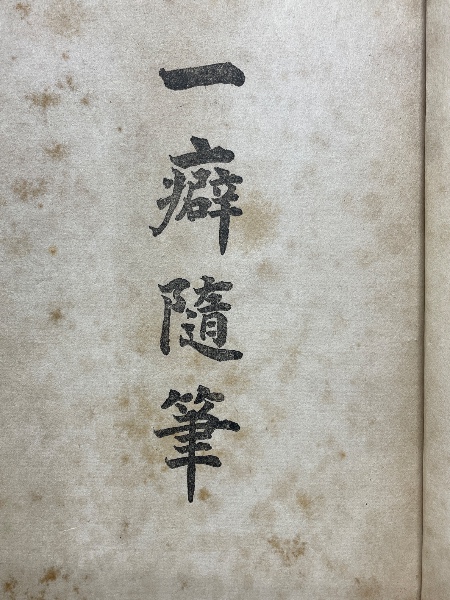 一癖隨筆